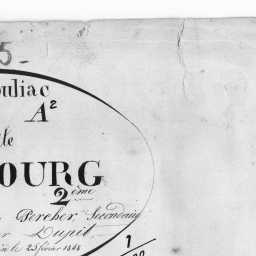 5
ouliac
A²
de
OURG
2ème
Percher Secondaire
Dupit
le 25 février 1868
1